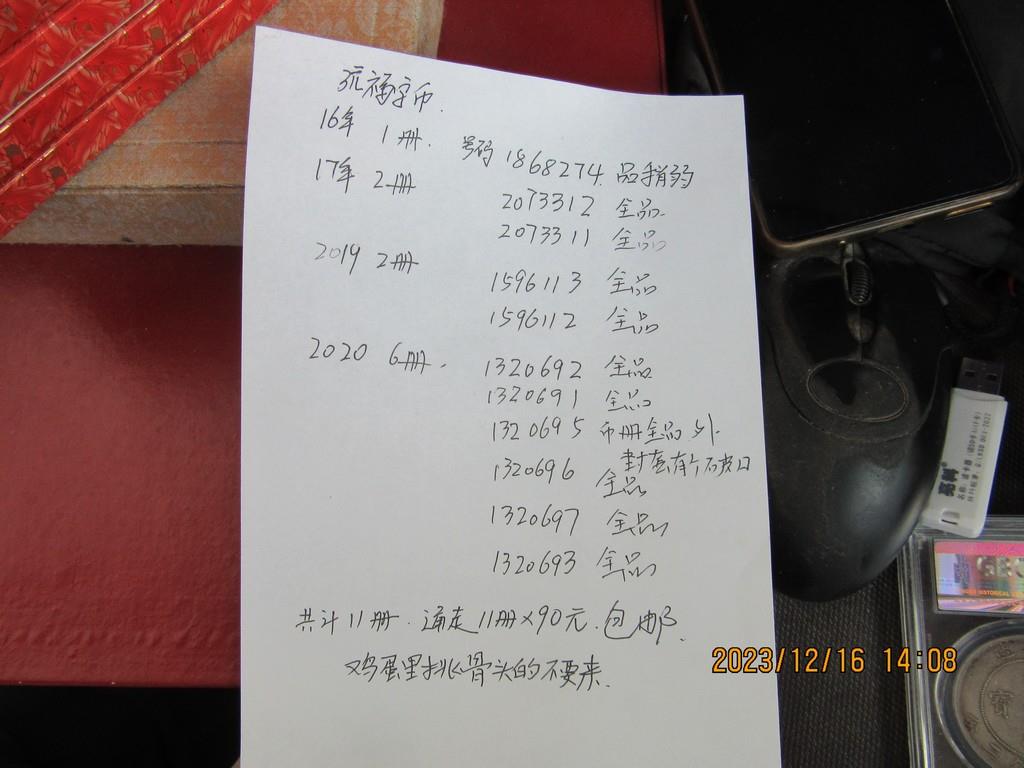 玩福字币.
16年 1册. 号码 1868274. 品稍弱
17年 2册 2073312 全品.
2073311 全品
2019 2册 1596113 全品
1596112 全品
2020 6册. 1320692 全品
1320691 全品
1320695 币册全品 外
封套有个破口
1320696 全品
1320697 全品
1320693 全品
共计11册. 通走 11册×90元. 包邮.
鸡蛋里挑骨头的不要来.
2023/12/16 14:08